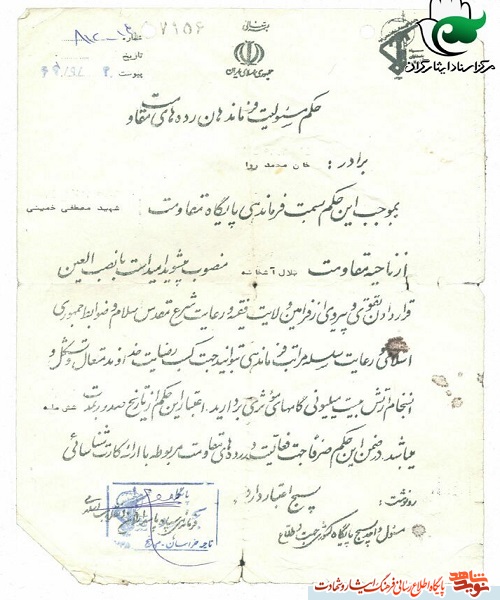 بسمه تعالی
جمهوری اسلامی ایران
۷۱۵۶
شماره
تاریخ
پیوست
مرکز اسناد ایثارگران
حکم مسئولیت فرماندهان رده های مقاومت
برادر : خان محمد روا
بموجب این حکم سمت فرماندهی پایگاه مقاومت شهید مصطفی خمینی
از ناحیه مقاومت منصوب میشوید امید است با نصب العین
قراردادن تقوی و پیروی از فرامین ولایت فقیه و رعایت شرع مقدس اسلام و ضوابط جمهوری
اسلامی و رعایت سلسله مراتب فرماندهی بتوانید جهت کسب رضایت خداوند متعال و تشکل و
انسجام ارتش بیست میلیونی گامهای مؤثری بردارید. اعتبار این حکم از تاریخ صدور بمدت شش ماه
میباشد. در ضمن این حکم صرفا جهت فعالیت در رده های مقاومت مربوطه با ارائه کارت شناسائی
بسیج اعتبار دارد
رونوشت :
مسئول واحد بسیج پایگاه جهت اطلاع
نوید شاهد
پایگاه اطلاع رسانی فرهنگ ایثار و شهادت